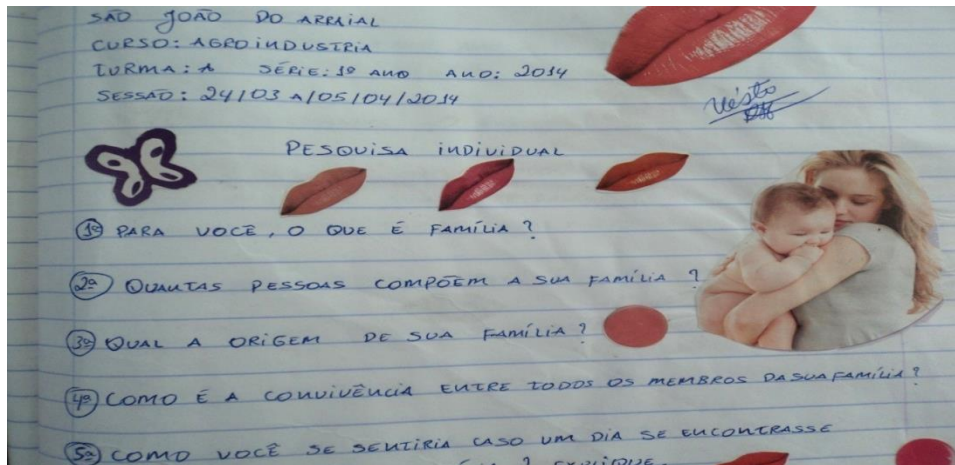 SÃO JOÃO DO ARRAIAL
CURSO: AGROINDUSTRIA
TURMA: A SÉRIE: 1º ANO ANO: 2014
SESSÃO: 24/03 A/05/04/2014
Visto
PESQUISA INDIVIDUAL
1º PARA VOCÊ, O QUE É FAMÍLIA?
2º QUANTAS PESSOAS COMPÕEM A SUA FAMÍLIA?
3º QUAL A ORIGEM DE SUA FAMÍLIA?
4º COMO É A CONVIVÊNCIA ENTRE TODOS OS MEMBROS DA SUA FAMÍLIA?
5º COMO VOCÊ SE SENTIRIA CASO UM DIA SE ENCONTRASSE
? EXPLIQUE.